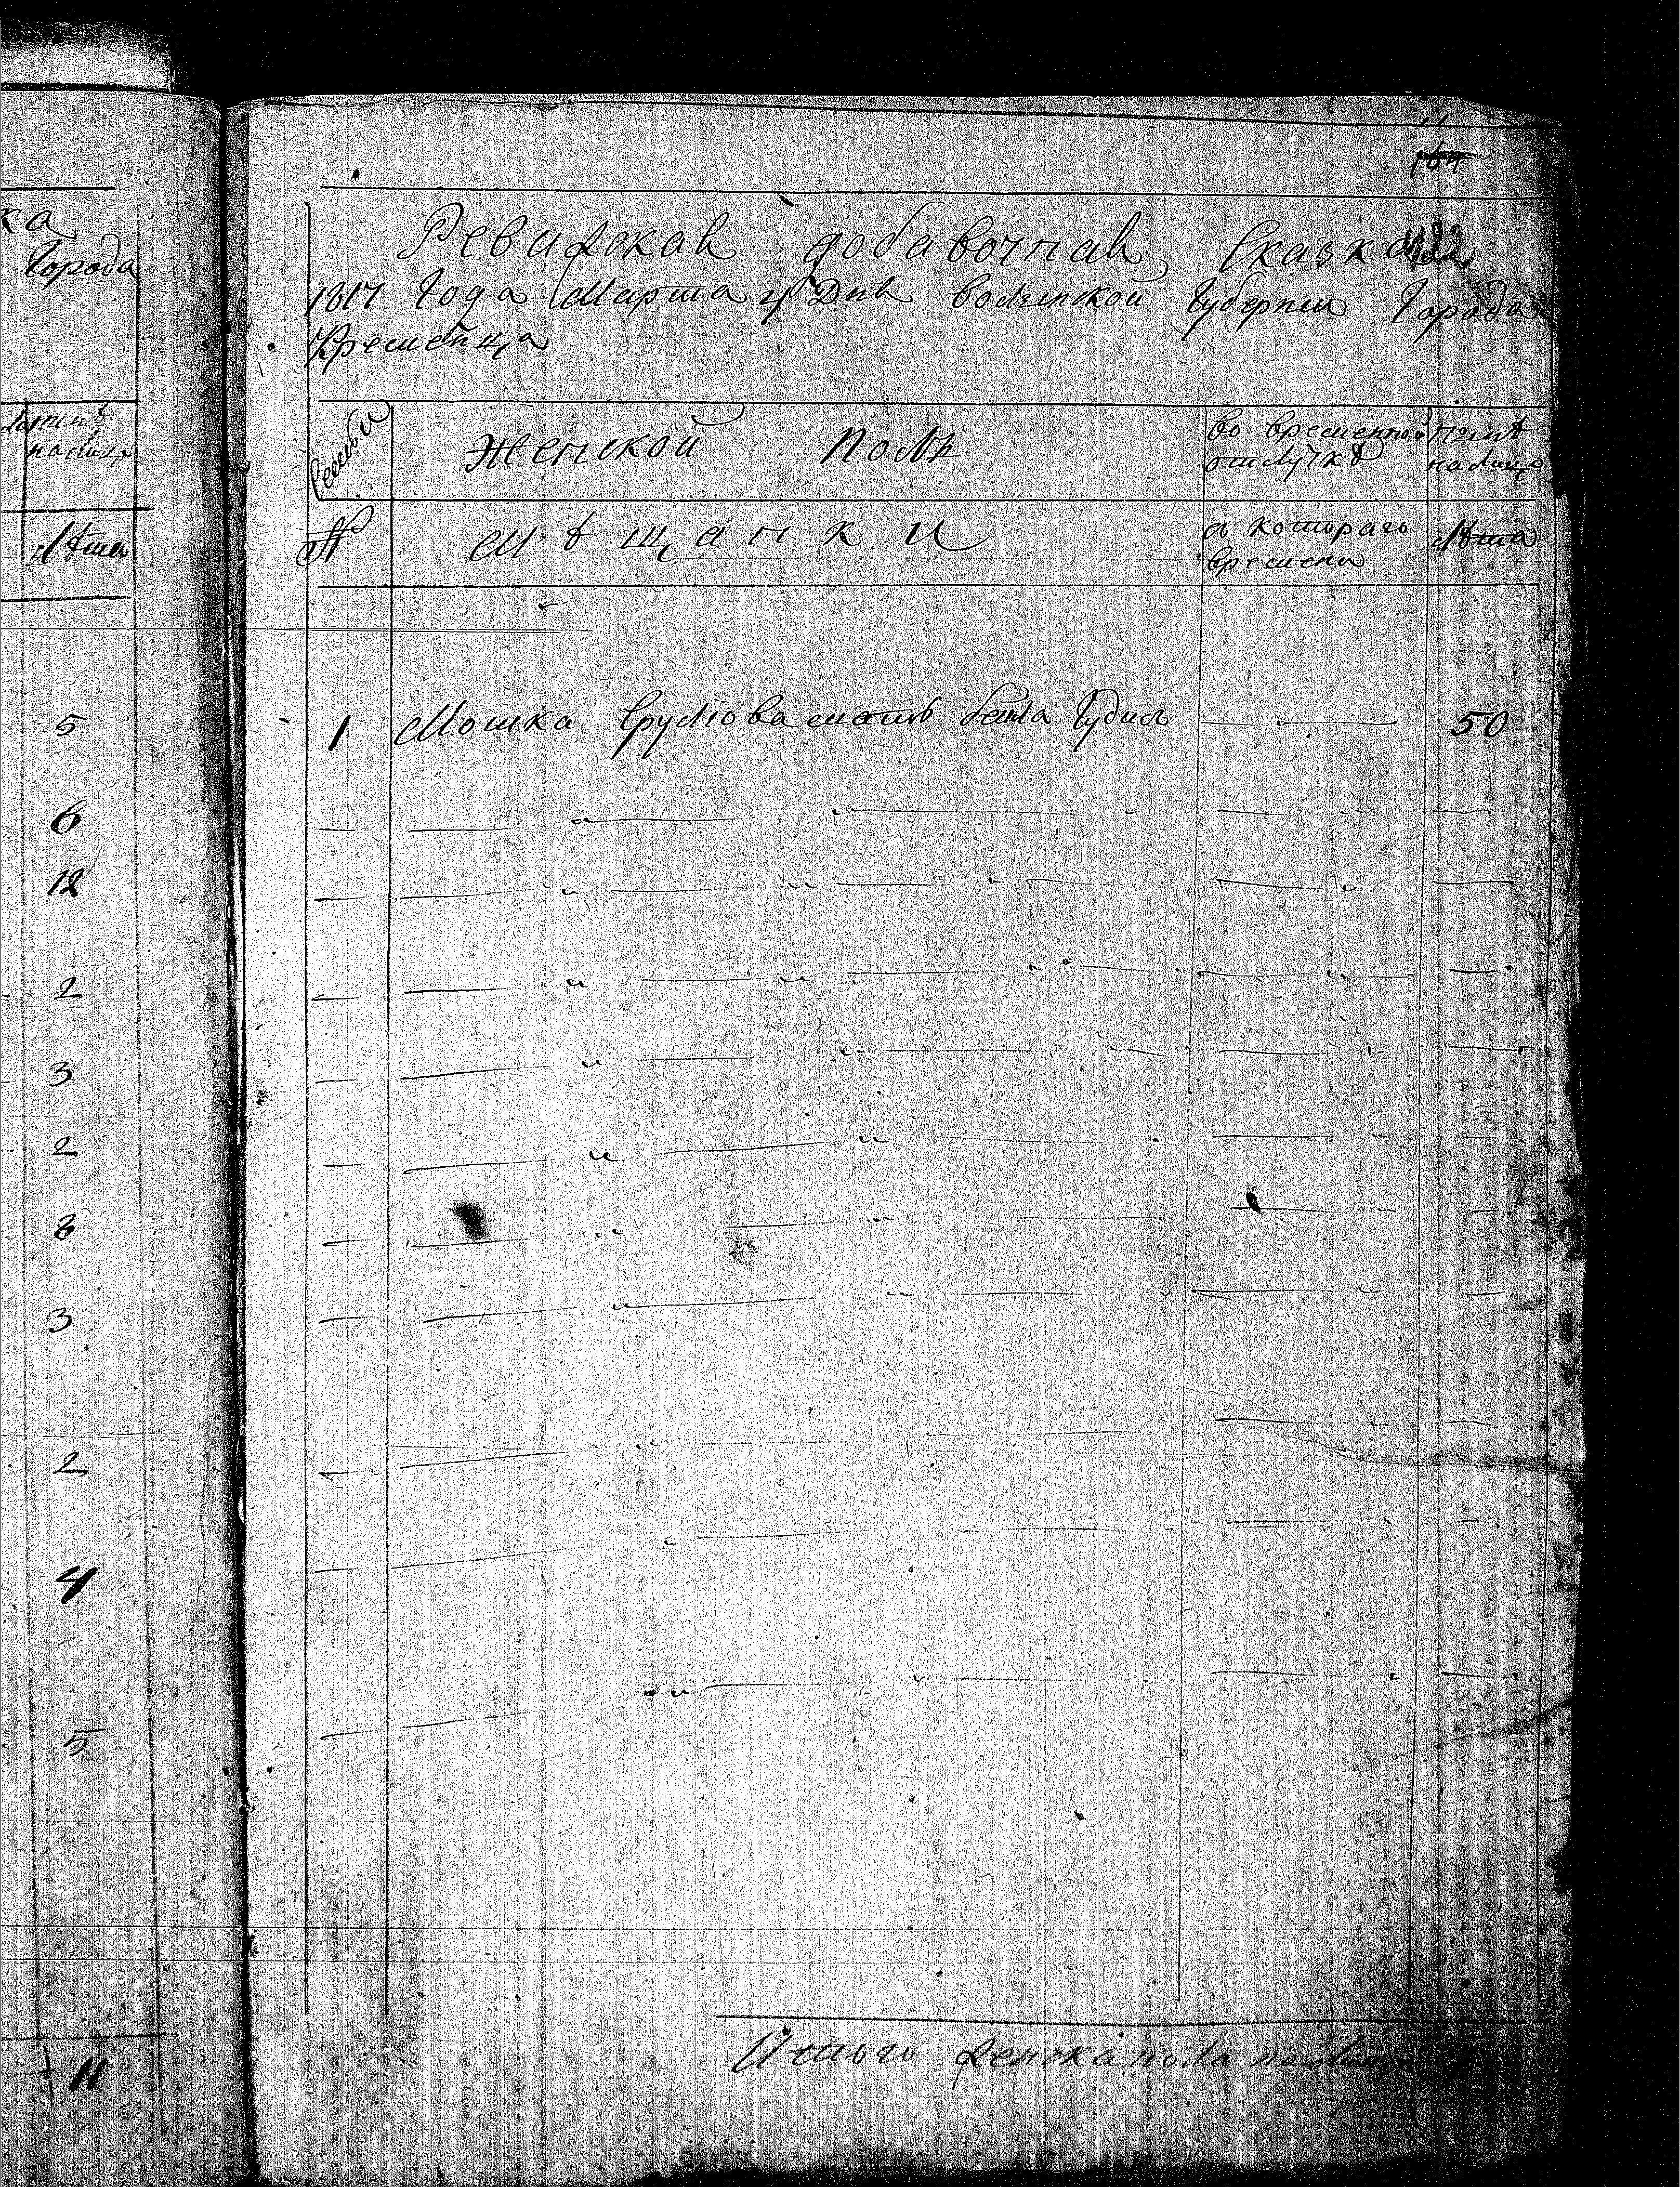 ка
Города
налиц
Лѣта
5
6
12
2
3
2
8
3
2
4
5
11
Ревизская добавочная Сказка 422
1817 Года Марта Дня Волынской Губернии Города
Кременца
Семьи Женской Полъ во временной отлучкѣ налицо
№ Мѣщанки съ котораго времени Лѣта
1 Мошка мать бейла 50
Итого женска пола